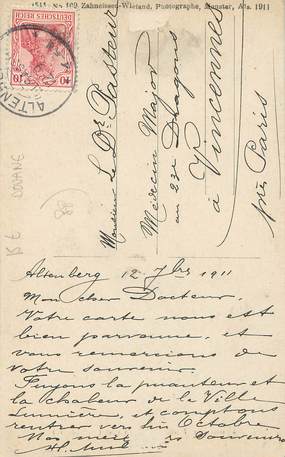 1515 - No 109 Zahneissen-Wieland, Photographe, Munster, Als. 1911
DEUTSCHES REICH
10 10
ALTENBERG
Monsieur Le Dr Pasteur
Médecin Major
au 23e Dragons
à Vincennes
près Paris
15 E DOUANE
Altenberg 12 7bre 1911
Mon cher Docteur.
Votre carte nous est
bien parvenue, et
vous remercions de
votre souvenir.
Fuyons la puanteur et
la chaleur de la Ville
Lumière, et comptons
rentrer vers fin Octobre.
Nos meilleurs souvenirs